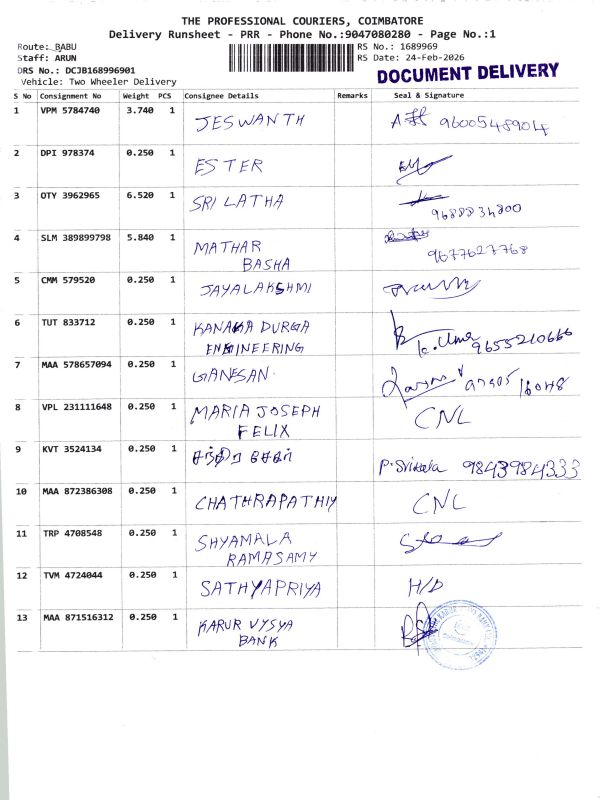 THE PROFESSIONAL COURIERS, COIMBATORE
Delivery Runsheet - PRR - Phone No.:9047080280 - Page No.:1
Route: BABU
RS No.: 1689969
Staff: ARUN
RS Date: 24-Feb-2026
DRS No.: DCJB168996901
DOCUMENT DELIVERY
Vehicle: Two Wheeler Delivery
S No Consignment No Weight PCS Consignee Details Remarks Seal & Signature
1 VPM 5784740 3.740 1 JESWANTH 9600548904
2 DPI 978374 0.250 1 ESTER
3 OTY 3962965 6.520 1 SRI LATHA
9688834800
4 SLM 389899798 5.840 1 MATHAR
BASHA 9677627768
5 CMM 579520 0.250 1 JAYALAKSHMI
6 TUT 833712 0.250 1 KANAKA DURGA
ENGINEERING K. Uma 9655210666
7 MAA 578657094 0.250 1 GANESAN
8 VPL 231111648 0.250 1 MARIA JOSEPH
FELIX CNL
9 KVT 3524134 0.250 1 சந்திர சேகர்
P. Srikala 9843984333
10 MAA 872386308 0.250 1 CHATHRAPATHIY CNL
11 TRP 4708548 0.250 1 SHYAMALA
RAMASAMY
12 TVM 4724044 0.250 1 SATHYAPRIYA H/D
13 MAA 871516312 0.250 1 KARUR VYSYA
BANK